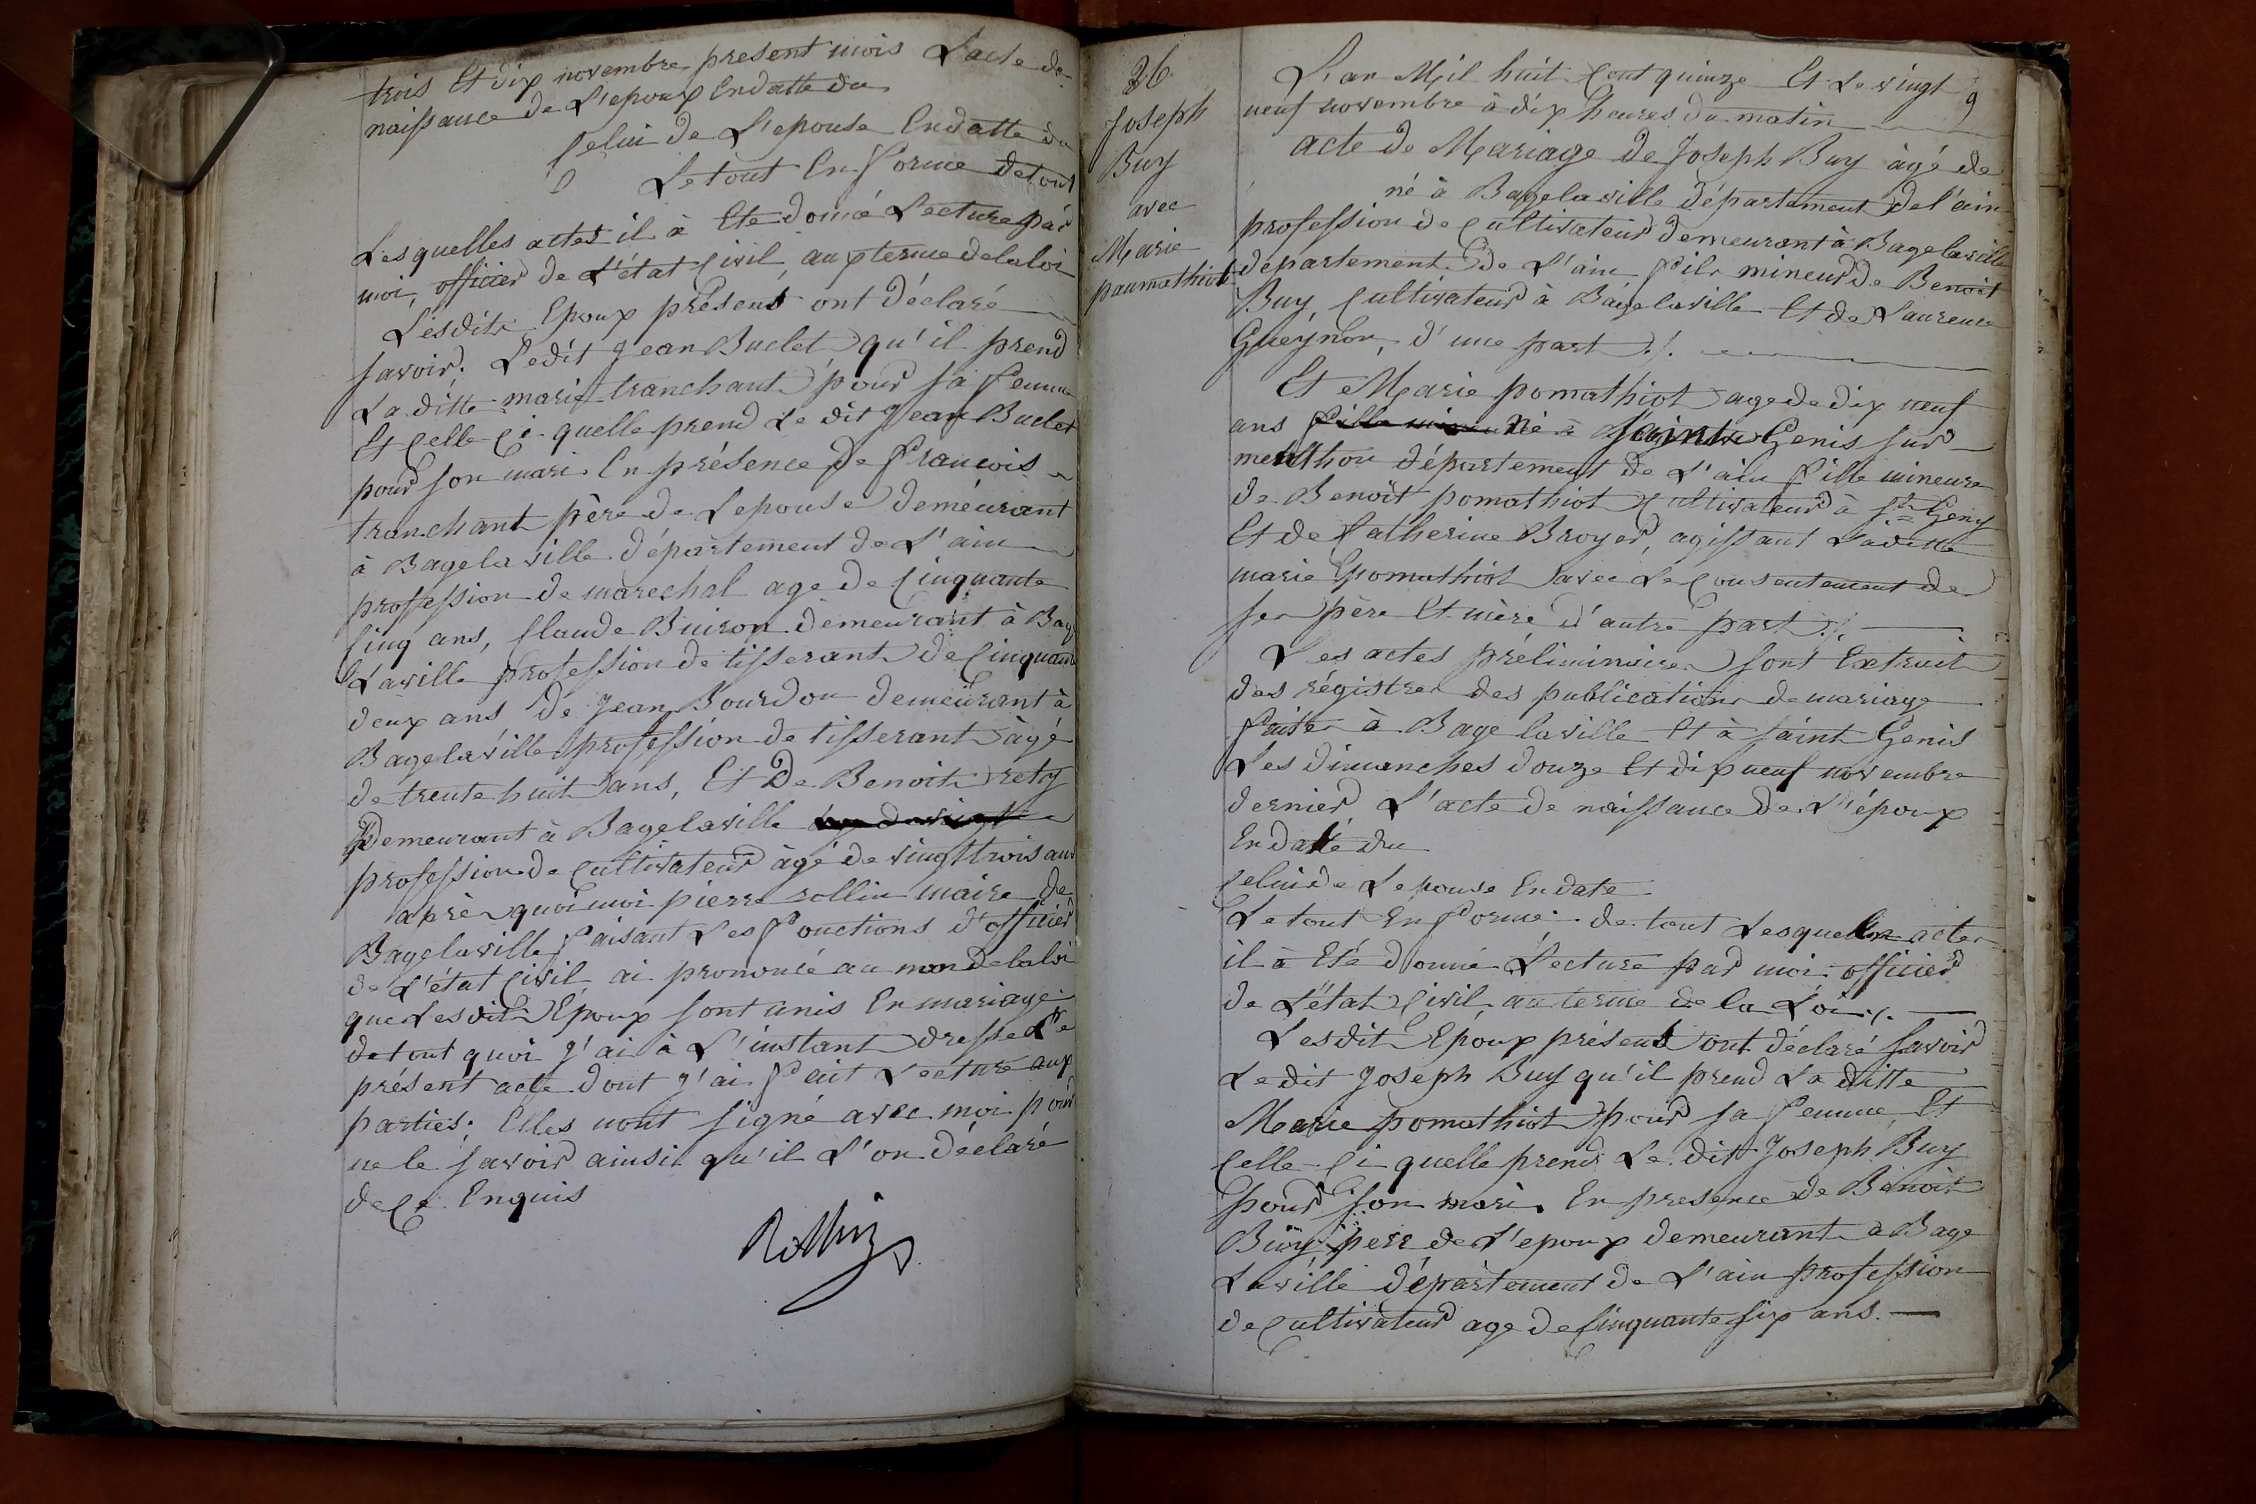 trois Et dix novembre present mois L'acte de
naissance de L'epoux En datte du
Celui de L'epouse En datte du
Le tout En forme de tout
Les quelles actes il à Eté donné Lecture par
moi, officier de L'état Civil, aux terme de la loi
Lesdits Epoux présens ont déclaré
savoir. Ledit Jean Buclet qu'il prend
La ditte marie tranchant pour sa femme
Et Celle Ci quelle prend Le dit Jean Buclet
pour son mari En présence de francois
tranchant père de Lepouse demeurant
à Bagelaville département de L'ain
profession de marechal age de Cinquante
Cinq ans, Claude Buiron demeurant à Bage
Laville profession de tisserant de Cinquante
deux ans de Jean Bourdon demeurant à
Bagelaville profession de tisserant àgé
de trente huit ans, Et De Benoit rety
Demeurant à Bagelaville
profession de Cultivateur àgé de vingt trois ans
après quoi moi pierre rollin maire de
Bagelaville faisant Les fonctions d'officier
de L'état Civil ai prononcé au nom de la loi
que Lesdits Epoux sont unis En mariage
de tout quoi j'ai à L'instant dressé Le
présent acte dont j'ai fait Lecture aux
parties. Elles n'ont signé avec moi pour
ne le savoir ainsi qu'il L'on déclaré
de Ce Enquis
Rollin
36
Joseph
Buy
avec
Marie
paumathiot
L'an Mil huit Cent quinze Et Le vingt 9
neuf novembre à dix heures du matin
acte de Mariage de Joseph Buy àgé de
né à Bagelaville département de l'ain
profession de Cultivateur demeurant à Bagelaville
departement de L'ain fils mineur de Benoit
Buy, Cultivateur à Bagelaville Et de Laurence
Gueynon, d'une part ./.
Et Marie pomathiot age de dix neuf
ans fille mineure Né à Saint Genis sur
menthon département de L'ain fille mineure
de Benoît pomathiot Cultivateur à St Genis
Et de Catherine Broyer, agissant Laditte
marie pomathiot avec Le Consentement de
ses père Et mère d'autre part ./.
Les actes préliminaires sont Extrait
des régistres des publications de mariage
faites à Bage laville Et à saint Genis
Les dimanches douze Et dix neuf novembre
dernier L'acte de naissance de L'époux
En datte du
Celui de Lepouse En date
Le tout En forme. de tout Lesquelles actes
il à Eté donné Lecture par moi officier
de L'état Civil au terme de la Loi ./.
Lesdit Epoux présens ont déclaré savoir
Le dit Joseph Buy qu'il prend La ditte
Marie pomathiot pour sa femme, Et
Celle-Ci quelle prend Le dit Joseph Buy
pour son mari. En presence de Benoit
Buy père de L'epoux demeurant à Bage
Laville département de L'ain profession
de Cultivateur age de Cinquante six ans.